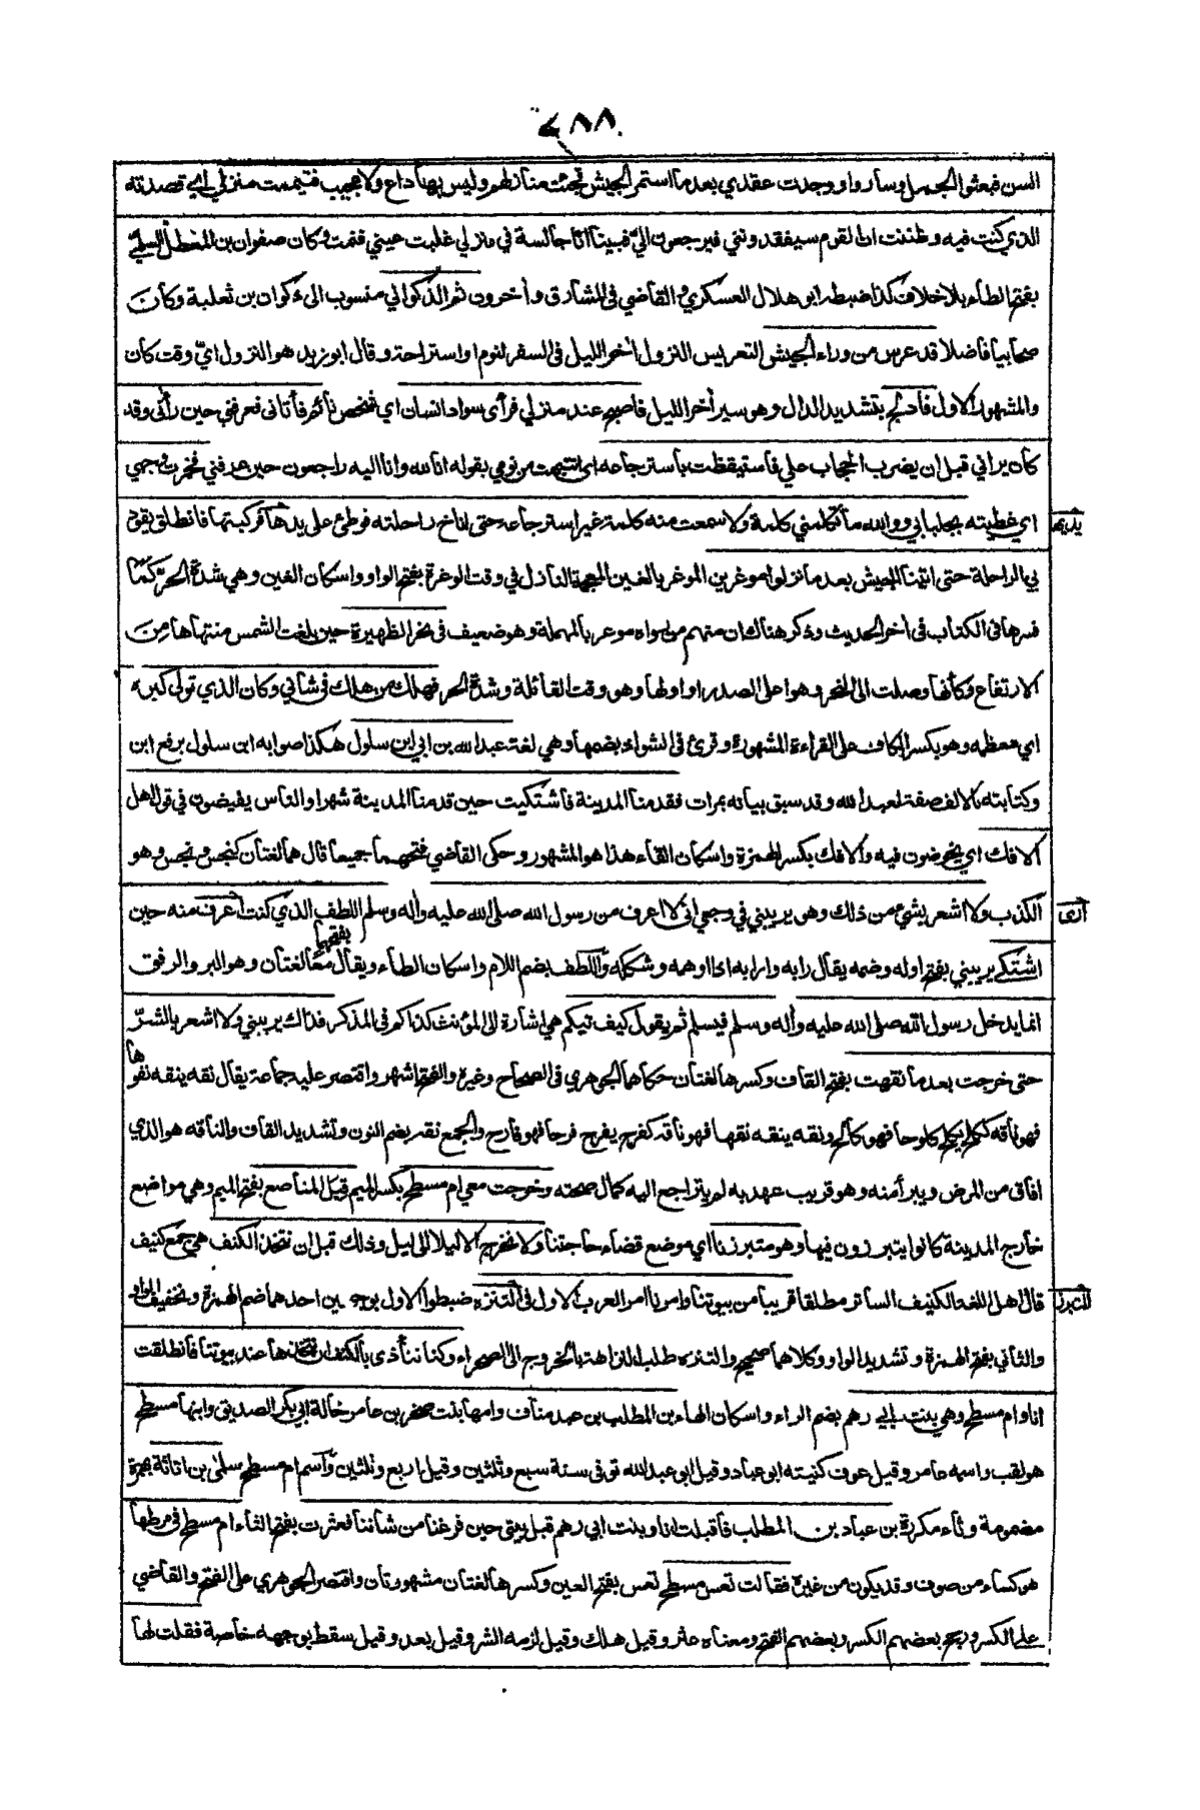 ٤٨٨
السن فبعثوا الجمل وساروا ووجدت عقدي بعد ما استمر الجيش فجئت منازلهم وليس بها داع ولا مجيب فتيممت منزلي اي قصدته
الذي كنت فيه وظننت ان القوم سيفقدونني فيرجعون اليّ فبينا انا جالسة في منزلي غلبت عيني فنمت وكان صفوان بن المعطل السلمي
بفتح الطاء بلا خلاف كذا ضبطه ابو هلال العسكري والقاضي في المشارق وآخرون ثم الذكواني منسوب الى ذكوان بن ثعلبة وكان
صحابيا فاضلا قد عرس من وراء الجيش التعريس النزول آخر الليل في السفر لنوم او استراحة وقال ابو زيد هو النزول ايّ وقت كان
والمشهور الاول فادلج بتشديد الدال وهو سير آخر الليل فاصبح عند منزلي فرأى سواد انسان اي شخص نائم فأتاني فعرفني حين رآني وقد
كان يراني قبل ان يضرب الحجاب علي فاستيقظت باسترجاعه اي انتبهت من نومي بقوله انا لله وانا اليه راجعون حين عرفني فخمرت وجهي
اي غطيته بجلبابي ووالله ما تكلمني كلمة ولا سمعت منه كلمة غير استرجاعه حتى اناخ راحلته فوطئ على يدها فركبتها فانطلق يقود
يديها
بي الراحلة حتى اتينا الجيش بعد ما نزلوا موغرين الموغر بالغين المعجمة النازل في وقت الوغرة بفتح الواو واسكان الغين وهي شدة الحرّ كما
فسرها في الكتاب في آخر الحديث وذكر هناك ان منهم من رواه موعر بالمهملة وهو ضعيف في نحر الظهيرة حين بلغت الشمس منتهاها من
الارتفاع وكأنها وصلت الى النحر وهو اعلى الصدر او اولها وهو وقت القائلة وشدة الحر فهلك من هلك في شاني وكان الذي تولى كبره
اي معظمه وهو بكسر الكاف على القراءة المشهورة وقرئ في الشواذ بضمها وهي لغة عبد الله بن ابي ابن سلول هكذا صوابه ابن سلول برفع ابن
وكتابته بالالف صفة لعبد الله وقد سبق بيانه بمرات فقدمنا المدينة فاشتكيت حين قدمنا المدينة شهرا والناس يفيضون في قول اهل
الافك اي يخوضون فيه والافك بكسر الهمزة واسكان الفاء هذا هو المشهور وحكى القاضي فتحهما جميعا قال هما لغتان كنجس ونجس وهو
الكذب ولا اشعر بشيئ من ذلك وهو يريبني في وجعي انى لا اعرف من رسول الله صلى الله عليه وآله وسلم اللطف الذي كنت اعرف منه حين
أرى
اشتكي يريبني بفتح اوله وضمه يقال رابه وارابه اذا اوهمه وشككه واللطف بضم اللام واسكان الطاء ويقال بفتحهما معًا لغتان وهو البر والرفق
انما يدخل رسول الله صلى الله عليه وآله وسلم فيسلم ثم يقول كيف تيكم هي اشارة الى المؤنث كذاكم في المذكر فذاك يريبني ولا اشعر بالشرّ
حتى خرجت بعد ما نقهت بفتح القاف وكسرها لغتان حكاهما الجوهري في الصحاح وغيره والفتح اشهر واقتصر عليه جماعة يقال نقه ينقه نقوها
فهو ناقه ككلح يكلح كلوحا فهو كالح ونقه ينقه نقها فهو ناقه كفرح يفرح فرحا فهو فارح والجمع نقه بضم النون وتشديد القاف والناقه هو الذي
افاق من المرض ويبرأ منه وهو قريب عهد به لم يتراجع اليه كمال صحته وخرجت معي ام مسطح بكسر الميم قبل المناصع بفتح الميم وهي مواضع
خارج المدينة كانوا يتبرزون فيها وهو متبرزنا اي موضع قضاء حاجتنا ولا نخرج الا ليلا الى ليل وذلك قبل ان نتخذ الكنف هي جمع كنيف
قال اهل اللغة الكنيف الساتر مطلقا قريبا من بيوتنا وامرنا امر العرب الاول في التنزه ضبطوا الاول بوجهين احدهما ضم الهمزة وتخفيف الواو
التبرز
والثاني بفتح الهمزة وتشديد الواو وكلاهما صحيح والتنزه طلب النزاهة بالخروج الى الصحراء وكنا نتأذى بالكنف ان نتخذها عند بيوتنا فانطلقت
انا وام مسطح وهي بنت ابي رهم بضم الراء واسكان الهاء بن المطلب بن عبد مناف وامها بنت صخر بن عامر خالة ابي بكر الصديق وابنها مسطح
هو لقب واسمه عامر وقيل عوف كنيته ابو عباد وقيل ابو عبد الله توفى سنة سبع وثلثين وقيل اربع وثلثين وأسم ام مسطح سلمى بن اثاثة بهمزة
مضمومة وثاء مكررة بن عباد بن المطلب فاقبلت انا وبنت ابي رهم قبل بيتي حين فرغنا من شاننا فعثرت بفتح الثاء ام مسطح في مرطها
هو كساء من صوف وقد يكون من غيره فقالت تعس مسطح تعس بفتح العين وكسرها لغتان مشهورتان واقتصر الجوهري على الفتح والقاضي
على الكسر ورجح بعضهم الكسر وبعضهم الفتح ومعناه عثر وقيل هلك وقيل لزمه الشر وقيل بعد وقيل سقط بوجهه خاصة فقلت لها